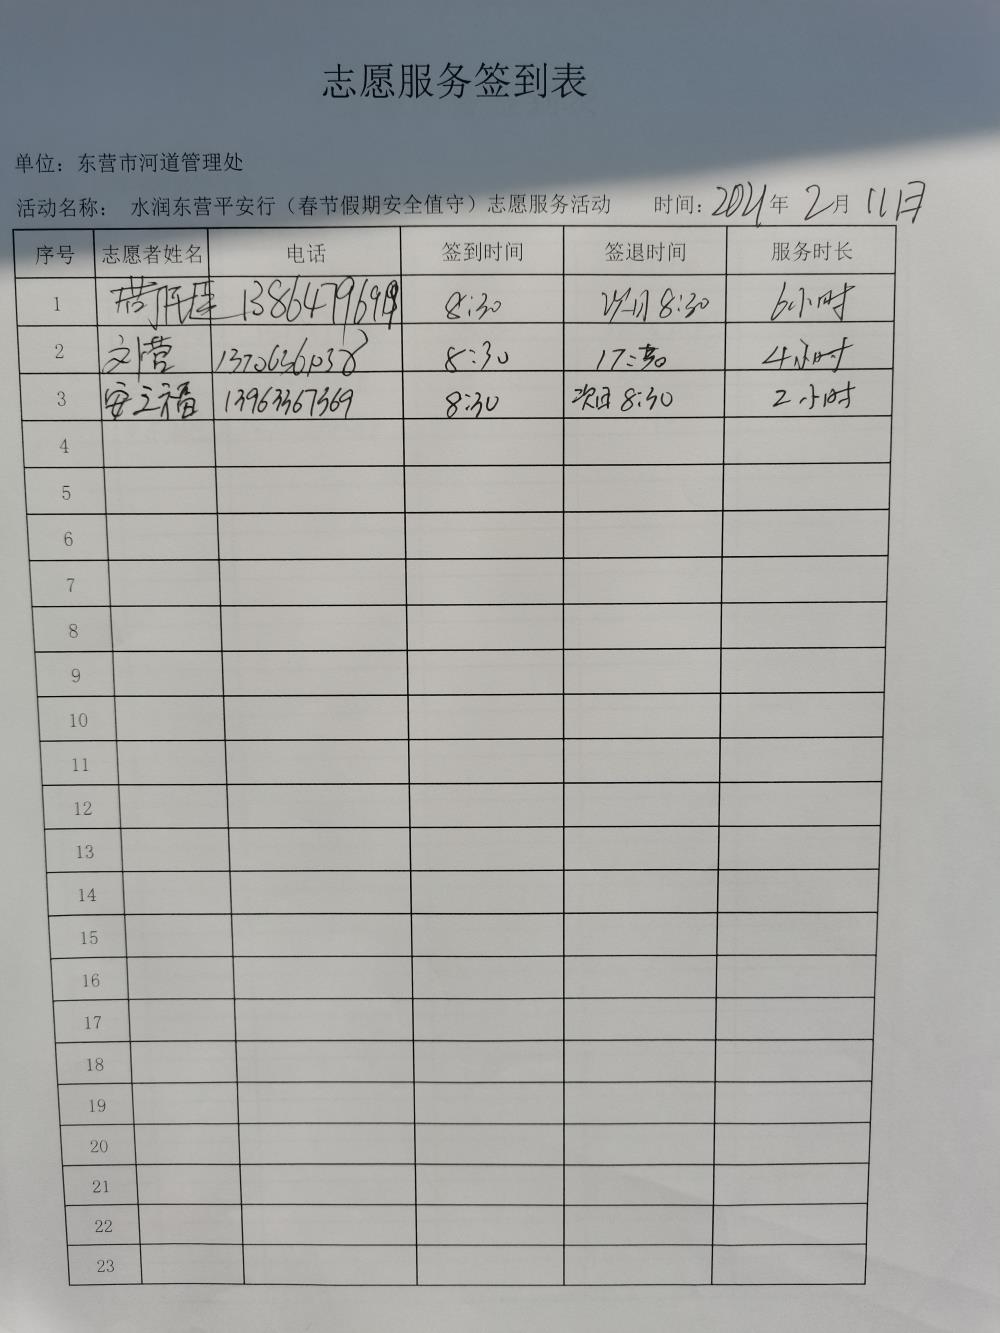 志愿服务签到表
单位：东营市河道管理处
活动名称： 水润东营平安行（春节假期安全值守）志愿服务活动 时间：2021年 2月 11日
序号 志愿者姓名 电话 签到时间 签退时间 服务时长
1 8:30 次日 8:30 6小时
2 刘营 8:30 17:30 4小时
3 安立福 13963367369 8:30 次日 8:30 2小时
4
5
6
7
8
9
10
11
12
13
14
15
16
17
18
19
20
21
22
23